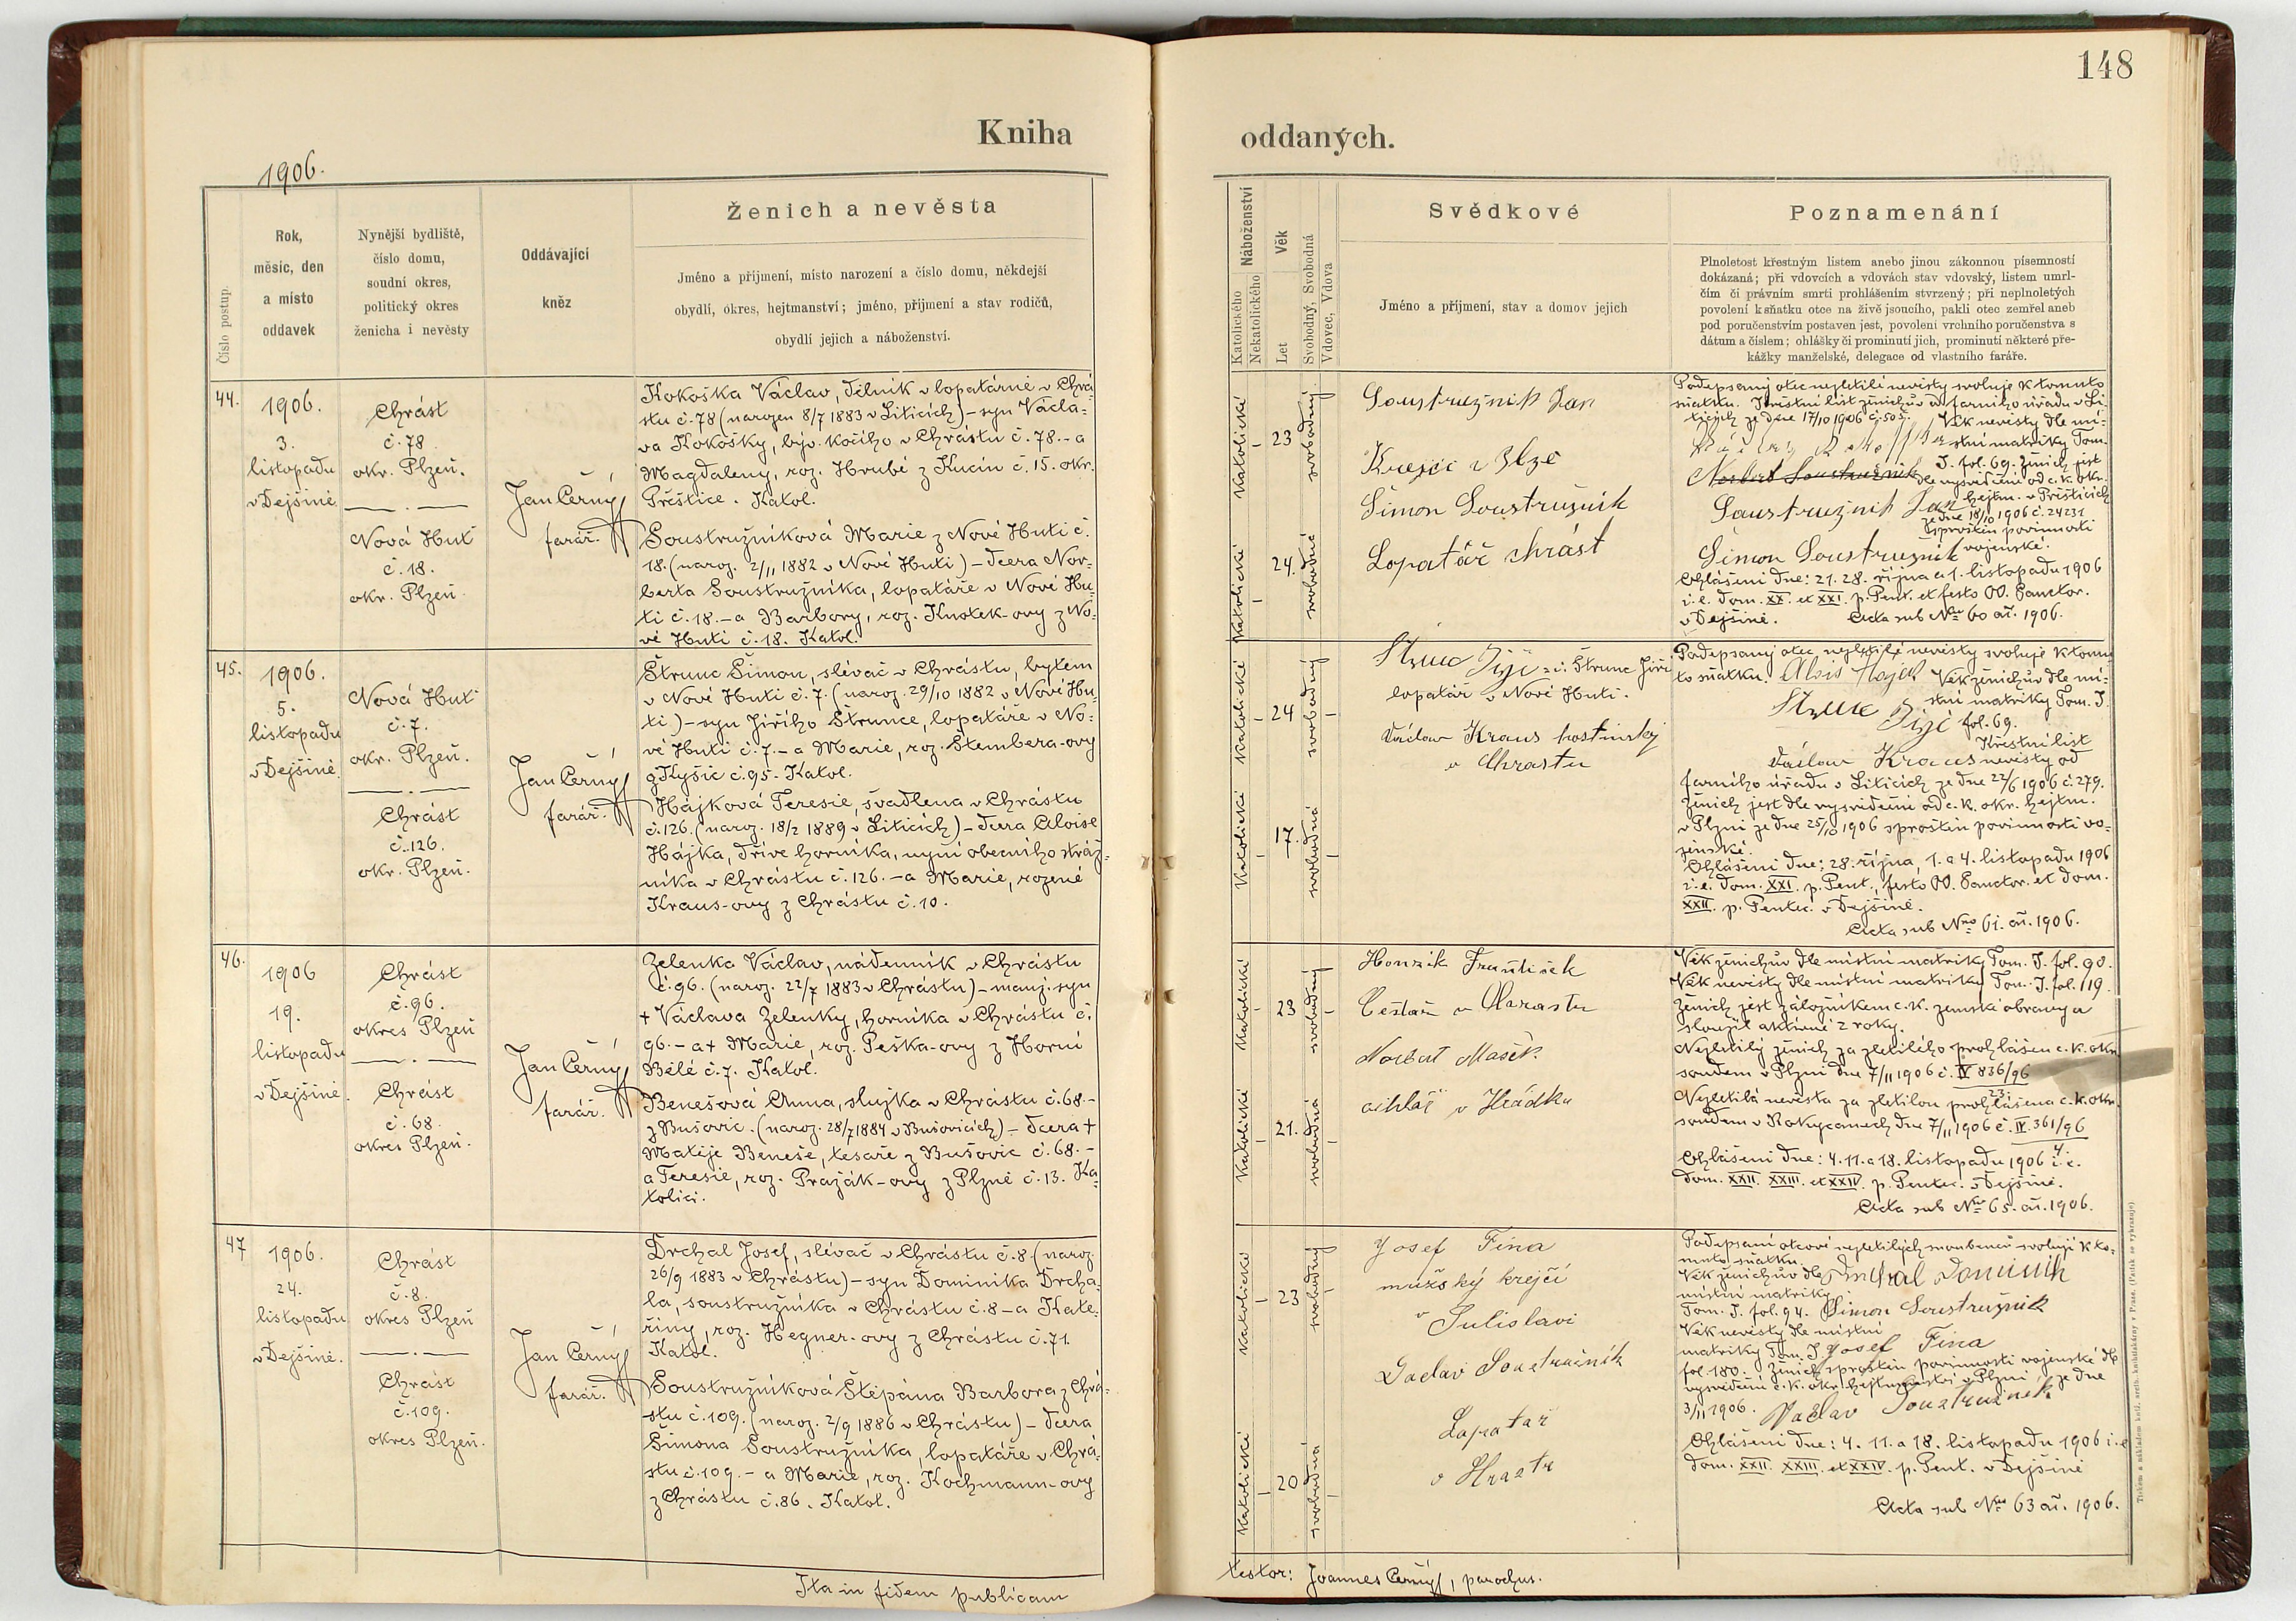 148
Kniha oddaných.
1906.
Číslo postup.
Rok,
měsíc, den
a místo
oddavek
Nynější bydliště,
číslo domu,
soudní okres,
politický okres
ženicha i nevěsty
Oddávající
kněz
Ženich a nevěsta
Jméno a přijmení, místo narození a číslo domu, někdejší
obydlí, okres, hejtmanství; jméno, přijmení a stav rodičů,
obydlí jejich a náboženství.
Náboženství
Katolického
Nekatolického
Věk
Let
Svobodný, Svobodná
Vdovec, Vdova
Svědkové
Jméno a přijmení, stav a domov jejich
Poznamenání
Plnoletost křestným listem anebo jinou zákonnou písemností
dokázaná; při vdovcích a vdovách stav vdovský, listem umrl-
čím či právním smrti prohlášením stvrzený; při neplnoletých
povolení k sňatku otce na živě jsoucího, pakli otec zemřel aneb
pod poručenstvím postaven jest, povolení vrchního poručenstva s
dátum a číslem; ohlášky či prominutí jich, prominutí některé pře-
kážky manželské, delegace od vlastního faráře.
44.
1906.
3.
listopadu
v Dejšině
Chrást
č. 78
okr. Plzeň.
Nová Huť
č. 18.
okr. Plzeň.
Jan Černý
farář.
Kokoška Václav, dělník v lopatárně v Chrá-
stu č. 78 (narozen 8/7 1883 v Liticích) – syn Václa-
va Kokošky, býv. kočího v Chrástu č. 78. – a
Magdaleny, roz. Hrubé z Kucín č. 15. okr.
Přeštice. Katol.
Soustružníková Marie z Nové Huti č.
18. (naroz. 2/11 1882 v Nové Huti) – dcera Nor-
berta Soustružníka, lopatáře v Nové Hu-
ti č. 18. – a Barbory, roz. Knotek-ovy z No-
vé Huti č. 18. Katol.
Katolické
23
svobodný
Katolické
24.
svobodná
Soustružnik Jan
Krejčí v Plzé
Šimon Soustružník
Lopatář chrást
Podepsaný otec nezletilé nevěsty svoluje k tomuto
sňatku. Křestní list ženichův od farního úřadu v Li-
ticích ze dne 17/10 1906 č. 505. Věk nevěsty dle mí-
stní matriky Tom.
I. fol. 69. Ženich jest
Norbert Soustružník dle vysvědčení od c. k. okr.
hejtm. v Přešticích
Soustružnik Jan ze dne 18/10 1906 č. 24231
sproštěn povinnosti
vojenské.
Šimon Soustružník
Ohlášeni dne: 21. 28. října a 1. listopadu 1906
i. e. dom. XX. et XXI. p. Pent. et festo OO. Sanctor.
v Dejšině. Acta sub Nro 60 an. 1906.
45.
1906.
5.
listopadu
v Dejšině.
Nová Huť
č. 7.
okr. Plzeň.
Chrást
č. 126.
okr. Plzeň.
Jan Černý
farář.
Štrunc Šimon, slévač v Chrástu, bytem
v Nové Huti č. 7. (naroz. 29/10 1882 v Nové Hu-
ti) – syn Jiřího Štrunce, lopatáře v No-
vé Huti č. 7. – a Marie, roz. Štembera-ovy
z Kyšic č. 95. Katol.
Hájková Teresie, švadlena v Chrástu
č. 126. (naroz. 18/2 1889 v Liticích) – dcera Aloise
Hájka, dříve horníka, nyní obecního stráž-
níka v Chrástu č. 126. – a Marie, rozené
Kraus-ovy z Chrástu č. 10.
Katolické
24
svobodný
Katolické
17.
svobodná
Štrunc Jiří = i. Štrunc Jiří
lopatář v Nové Huti.
Václav Kraus hostinský
v Chrastu
Podepsaný otec nezletilé nevěsty svoluje k tomu-
to sňatku. Alois Hájek Věk ženichův dle mí-
stní matriky Tom. I.
Štrunc Jiří fol. 69.
Křestní list
Václav Kraus nevěsty od
farního úřadu v Liticích ze dne 22/6 1906 č. 279.
Ženich jest dle vysvědčení od c. k. okr. hejtm.
v Plzni ze dne 25/10 1906 sproštěn povinnosti vo-
jenské.
Ohlášeni dne: 28. října, 1. a 4. listopadu 1906
i. e. dom. XXI. p. Pent., festo OO. Sanctor. et dom.
XXII. p. Pentec. v Dejšině.
Acta sub Nro 61. an. 1906.
46.
1906
19.
listopadu
v Dejšině.
Chrást
č. 96.
okres Plzeň
Chrást
č. 68.
okres Plzeň.
Jan Černý
farář.
Zelenka Václav, nádenník v Chrástu
č. 96. (naroz. 22/7 1883 v Chrástu) – manž. syn
+ Václava Zelenky, horníka v Chrástu č.
96. – a + Marie, roz. Peška-ovy z Horní
Bělé č. 7. Katol.
Benešová Anna, služka v Chrástu č. 68. –
z Bušovic. (naroz. 28/7 1884 v Bušovicích) – dcera +
Matěje Beneše, tesaře z Bušovic č. 68. –
a Teresie, roz. Pražák-ovy z Plzně č. 13. Ka-
tolíci.
Katolické
23
svobodný
Katolické
21.
svobodná
Honzik František
Cestař v Chrastu
Norbert Mašek
cihlář v Hrádku
Věk ženichův dle místní matriky Tom. I. fol. 90.
Věk nevěsty dle místní matriky Tom. I. fol. 119.
Ženich jest záložníkem c. k. zemské obrany a
sloužil aktivně 2 roky.
Nezletilý ženich za zletilého prohlášen c. k. okr.
soudem v Plzni dne 7/11 1906 č. IV 836/96
23.
Nezletilá nevěsta za zletilou prohlášena c. k. okr.
soudem v Rokycanech dne 7/11 1906 č. IV. 361/96
4.
Ohlášeni dne: 4. 11. a 18. listopadu 1906 i. e.
dom. XXII. XXIII. et XXIV. p. Pentec. v Dejšině.
Acta sub Nro 65. an. 1906.
47
1906.
24.
listopadu
v Dejšině.
Chrást
č. 8.
okres Plzeň
Chrást
č. 109.
okres Plzeň.
Jan Černý
farář.
Drchal Josef, slévač v Chrástu č. 8. (naroz.
26/9 1883 v Chrástu) – syn Dominika Drcha-
la, soustružníka v Chrástu č. 8 – a Kate-
řiny, roz. Hegner-ovy z Chrástu č. 71.
Katol.
Soustružníková Štěpána Barbora z Chrá-
stu č. 109. (naroz. 2/9 1886 v Chrástu) – dcera
Šimona Soustružníka, lopatáře v Chrá-
stu č. 109. – a Marie, roz. Kochmann-ovy
z Chrástu č. 86. Katol.
Katolické
23
svobodný
Katolické
20
svobodná
Josef Fina
mužský krejčí
v Sulislavi
Vaclav Soustružník
Lopatař
v Hrastu
Podepsaní otcové nezletilých snoubenců svolují k to-
muto sňatku.
Věk ženichův dle Drchal Dominik
místní matriky
Tom. I. fol. 94. Šimon Soustružnik
Věk nevěsty dle místní
matriky Tom. I. Josef Fina
fol. 180. Ženich sproštěn povinnosti vojenské dle
vysvědčení c. k. okr. hejtmanství v Plzni ze dne
3/11 1906. Vaclav Soustružník
Ohlášeni dne: 4. 11. a 18. listopadu 1906 i. e.
dom. XXII. XXIII. et XXIV. p. Pent. v Dejšině
Acta sub Nro 63 an. 1906.
Ita in fidem publicam
testor: Joannes Černý, parochus.